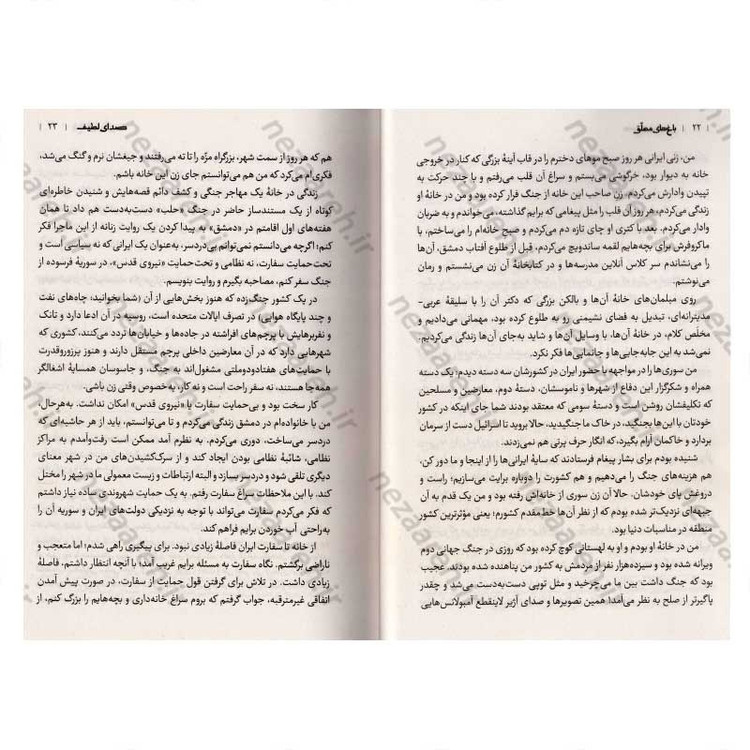 ۲۲ | باغ‌های معلق
من، زنی ایرانی هر روز صبح موهای دخترم را در قاب آینهٔ بزرگی که کنار در خروجی
خانه به دیوار بود، خرگوشی می‌بستم و سراغ آن قلب می‌رفتم و با چند حرکت به
تپیدن وادارش می‌کردم. زن صاحب این خانه از جنگ فرار کرده بود و من در خانهٔ او
زندگی می‌کردم، هر روز آن قلب را مثل پیغامی که برایم گذاشته، می‌خواندم و به ضربان
وادار می‌کردم. بعد با کتری او چای تازه دم می‌کردم و صبح خانه‌ام را می‌ساختم، با
ماکروفرش برای بچه‌هایم لقمه ساندویچ می‌کردم، قبل از طلوع آفتاب دمشق، آن‌ها
را می‌نشاندم سر کلاس آنلاین مدرسه‌ها و در کتابخانهٔ آن زن می‌نشستم و رمان
می‌نوشتم.
روی مبلمان‌های خانهٔ آن‌ها و بالکن بزرگی که دکتر آن را با سلیقهٔ عربی-
مدیترانه‌ای، تبدیل به فضای نشیمنی رو به طلوع کرده بود، مهمانی می‌دادیم و
مخلّص کلام، در خانهٔ آن‌ها، با وسایل آن‌ها و شاید به‌جای آن‌ها زندگی می‌کردیم.
نمی‌شد به این جابه‌جایی‌ها و جانمایی‌ها فکر نکرد.
من سوری‌ها را در مواجهه با حضور ایران در کشورشان سه دسته دیدم؛ یک دسته
همراه و شکرگزار این دفاع از شهرها و ناموسشان، دستهٔ دوم، معارضین و مسلحین
که تکلیفشان روشن است و دستهٔ سومی که معتقد بودند شما جای اینکه در کشور
خودتان با این‌ها بجنگید، در خاک ما جنگیدید، حالا بروید تا اسرائیل دست از سرمان
بردارد و خاکمان آرام بگیرد، که انگار حرف پرتی هم نمی‌زدند.
شنیده بودم برای بشار پیغام فرستادند که سایهٔ ایرانی‌ها را از اینجا و ما دور کن،
هم هزینه‌های جنگ را می‌دهیم و هم کشورت را دوباره برایت می‌سازیم؛ راست و
دروغش پای خودشان. حالا آن زن سوری از خانه‌اش رفته بود و من یک قدم به آن
جبهه‌ای نزدیک‌تر شده بودم که از نظر آن‌ها خط‌مقدم کشورم؛ یعنی مؤثرترین کشور
منطقه در مناسبات دنیا بود.
من در خانهٔ او بودم و او به لهستانی کوچ کرده بود که روزی در جنگ جهانی دوم
ویرانه شده بود و سیزده‌هزار نفر از مردمش به کشور من پناهنده شده بودند. عجیب
بود که جنگ داشت بین ما می‌چرخید و مثل توپی دست‌به‌دست می‌شد و چقدر
پاگیرتر از صلح به نظر می‌آمد! همین تصویرها و صدای آژیر لاینقطع آمبولانس‌هایی
صدای لطیف | ۲۳
هم که هر روز از سمت شهر، بزرگراه مزّه را تا ته می‌رفتند و جیغشان نرم و گنگ می‌شد،
فکری‌ام می‌کرد که من هم می‌توانستم جای زن این خانه باشم.
زندگی در خانهٔ یک مهاجر جنگی و کشف دائم قصه‌هایش و شنیدن خاطره‌ای
کوتاه از یک مستندساز حاضر در جنگ «حلب» دست‌به‌دست هم داد تا همان
هفته‌های اول اقامتم در «دمشق» به پیدا کردن یک روایت زنانه از این ماجرا فکر
کنم؛ اگرچه می‌دانستم نمی‌توانم بی‌دردسر، به‌عنوان یک ایرانی که نه سیاسی است و
تحت‌حمایت سفارت، نه نظامی و تحت‌حمایت «نیروی قدس»، در سوریهٔ فرسوده از
جنگ سفر کنم، مصاحبه بگیرم و روایت بنویسم.
در یک کشور جنگ‌زده که هنوز بخش‌هایی از آن (شما بخوانید، چاه‌های نفت
و چند پایگاه هوایی) در تصرف ایالات متحده است، روسیه در آن ادعا دارد و تانک
و نفربرهایش با پرچم‌های افراشته در جاده‌ها و خیابان‌ها تردد می‌کنند، کشوری که
شهرهایی دارد که در آن معارضین داخلی پرچم مستقل دارند و هنوز پرزوروقدرت
با حمایت‌های هفتادودوملتی مشغول‌اند به جنگ، و جاسوسان همسایهٔ اشغالگر
همه‌جا هستند، نه سفر راحت است و نه کار، به‌خصوص وقتی زن باشی.
کار سخت بود و بی‌حمایت سفارت یا «نیروی قدس» امکان نداشت. به‌هرحال،
من با خانواده‌ام در دمشق زندگی می‌کردم و تا می‌توانستم، باید از هر حاشیه‌ای که
دردسر می‌ساخت، دوری می‌کردم. به نظرم آمد ممکن است رفت‌وآمدم به مراکز
نظامی، شائبهٔ نظامی بودن ایجاد کند و از سرک‌کشیدن‌های من در شهر معنای
دیگری تلقی شود و دردسر بسازد و البته ارتباطات و زیست معمولی ما در شهر را مختل
کند. با این ملاحظات سراغ سفارت رفتم. به یک حمایت شهروندی ساده نیاز داشتم
که فکر می‌کردم سفارت می‌تواند با توجه به نزدیکی دولت‌های ایران و سوریه آن را
به‌راحتی آب خوردن برایم فراهم کند.
از خانه تا سفارت ایران فاصلهٔ زیادی نبود. برای پیگیری راهی شدم؛ اما متعجب و
ناراضی برگشتم. نگاه سفارت به مسئله برایم غریب آمد؛ با آنچه انتظار داشتم، فاصلهٔ
زیادی داشت. در تلاش برای گرفتن قول حمایت از سفارت، در صورت پیش آمدن
اتفاقی غیرمترقبه، جواب گرفتم که بروم سراغ خانه‌داری و بچه‌هایم را بزرگ کنم، از
nezaareh.ir